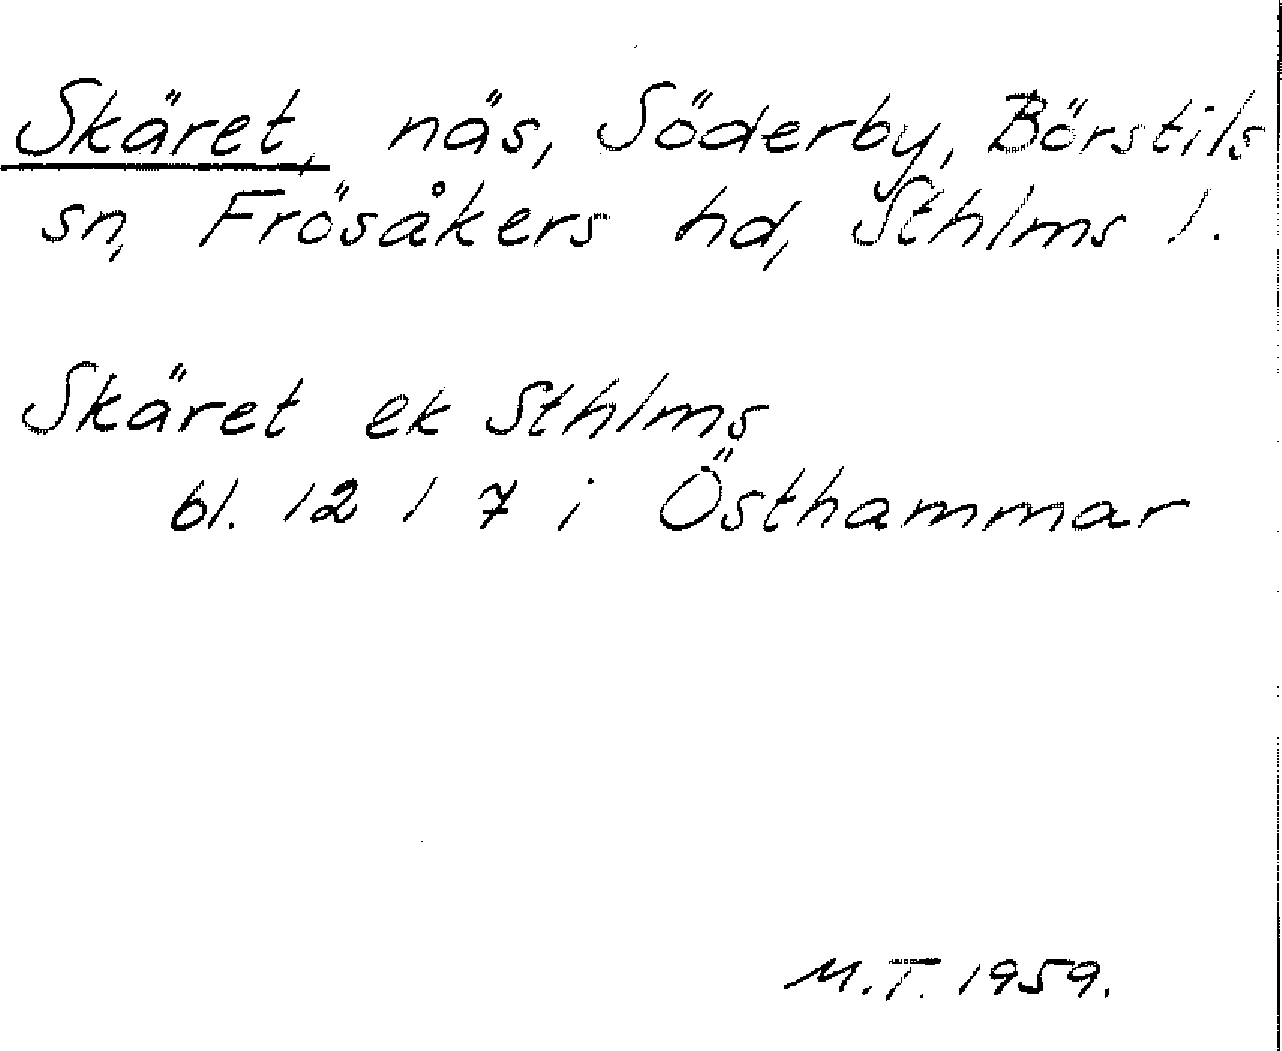 Skäret, näs, Söderby, Börstils
sn, Frösåkers hd, Sthlms l.
Skäret ek Sthlms
bl. 12 l 7 i Östhammar
M.T. 1959.